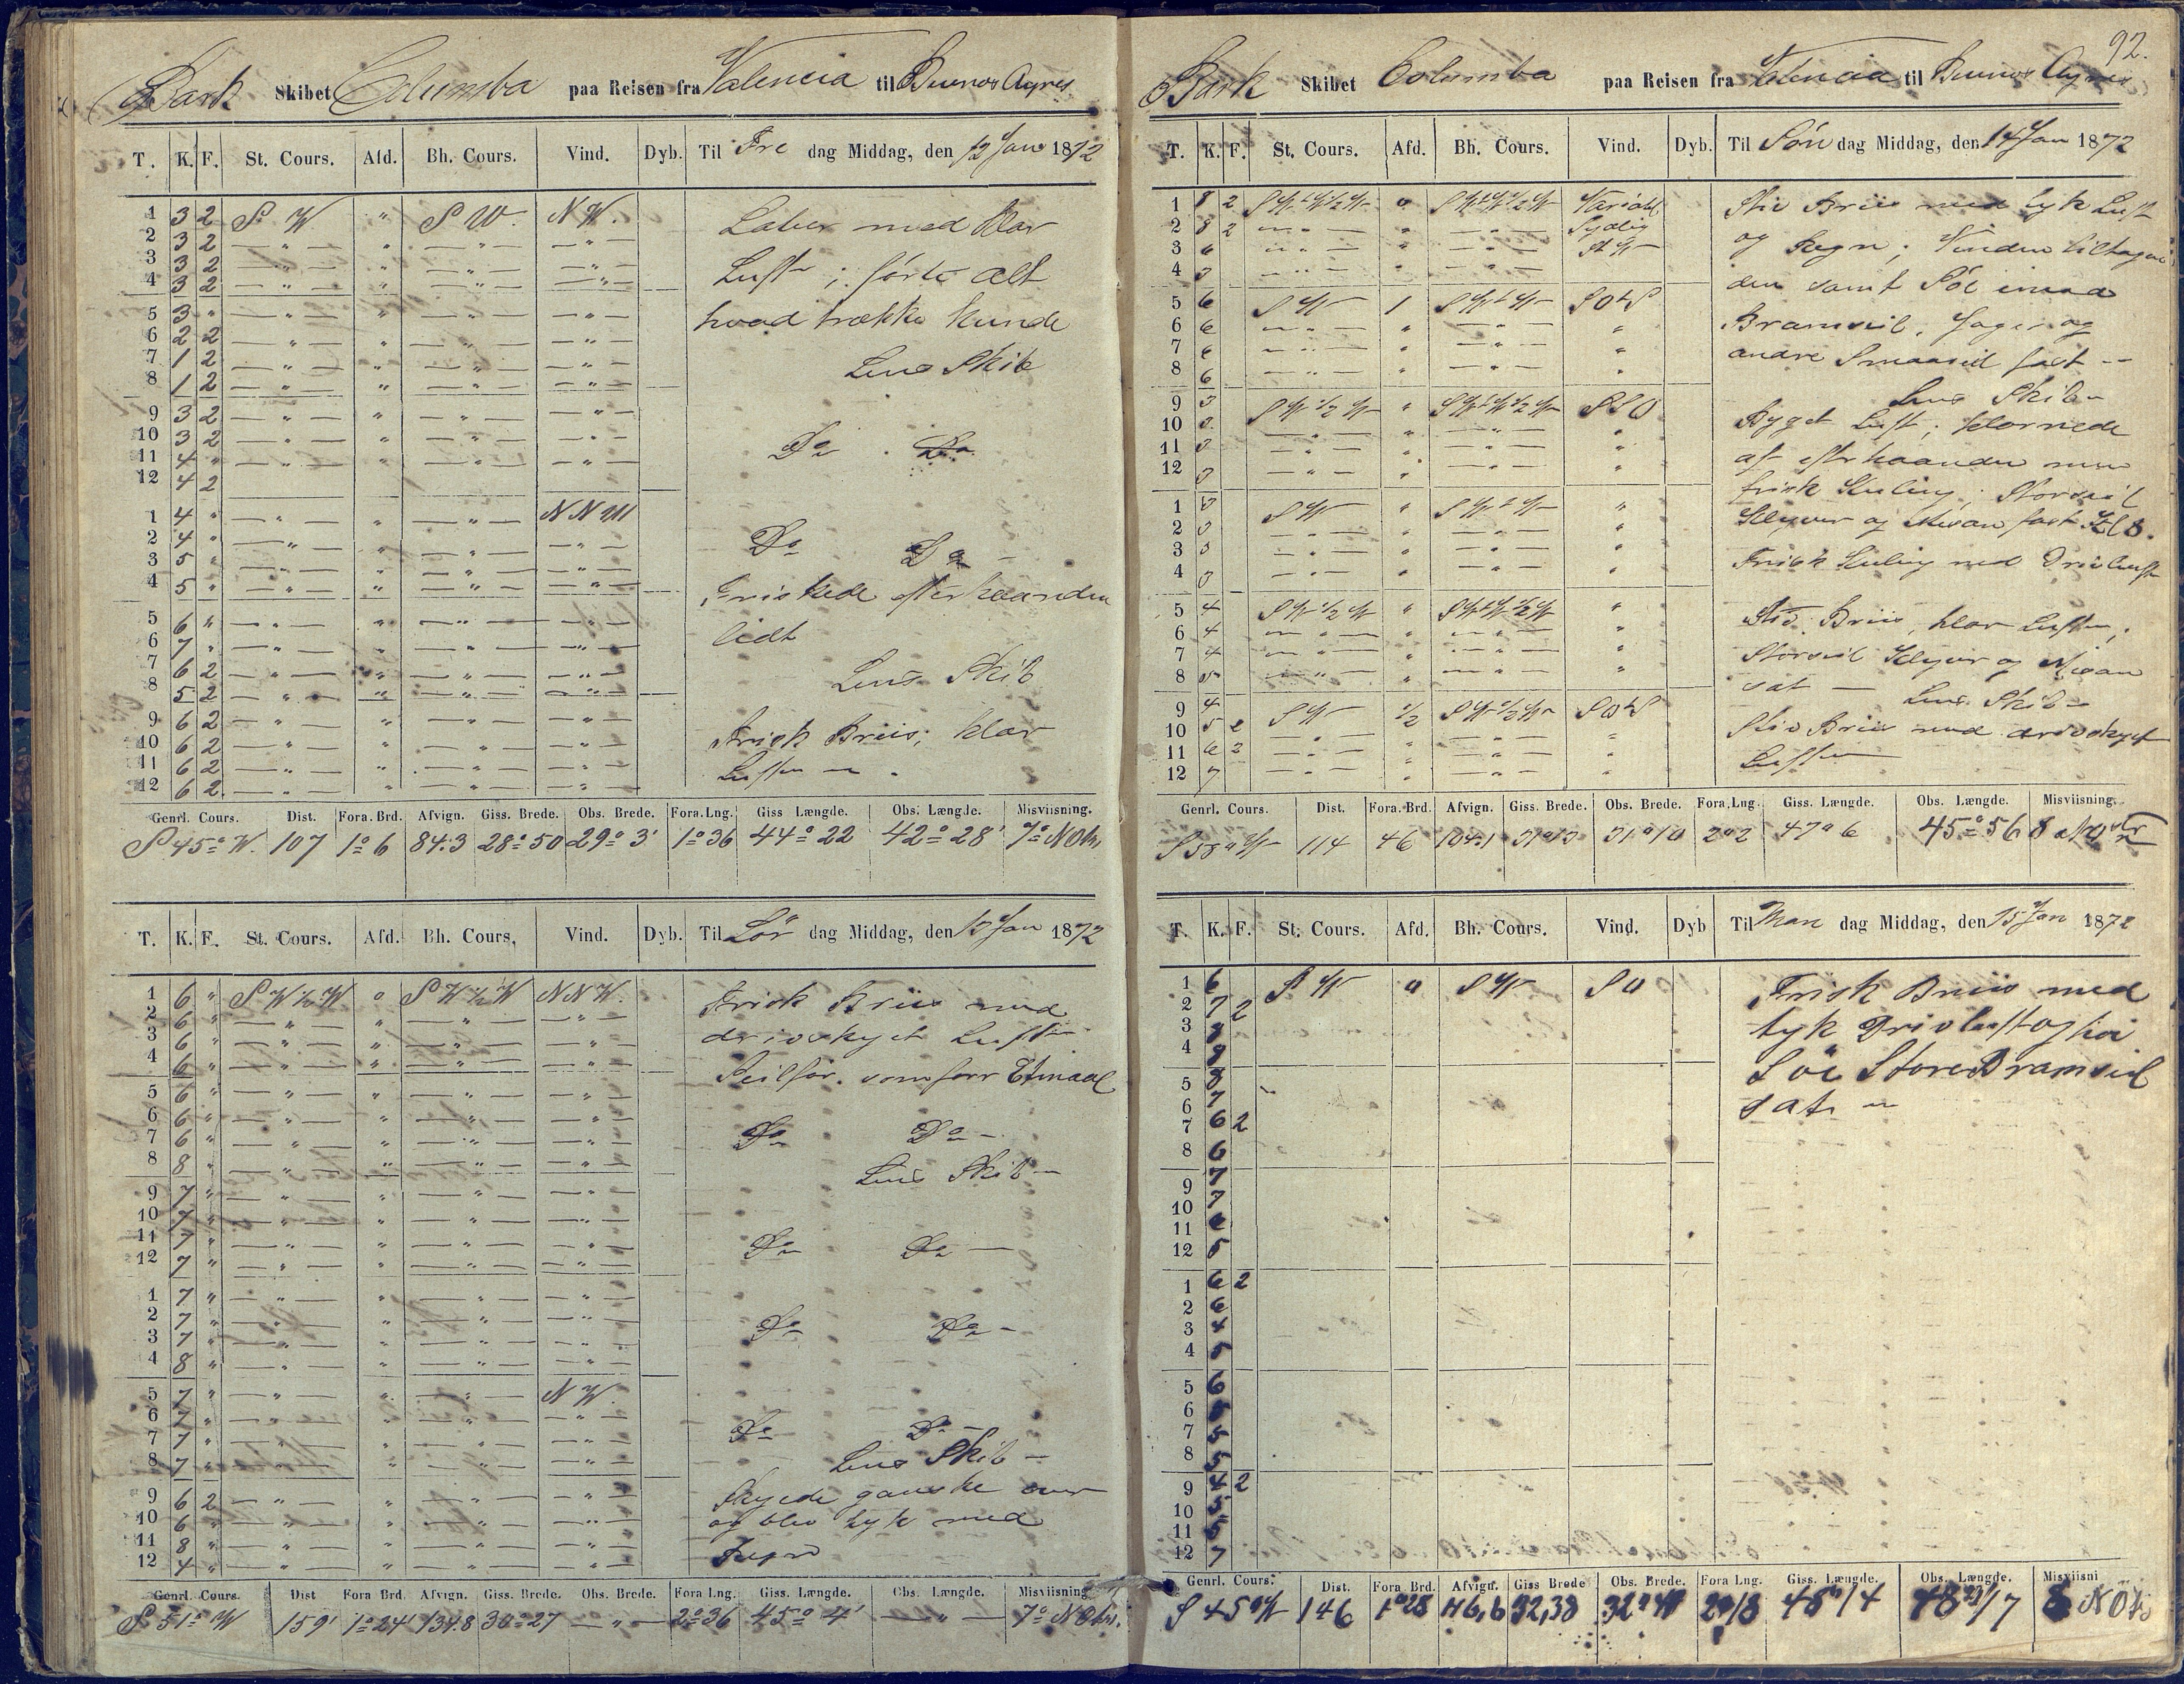 Bark Skibet Columba paa Reisen fra Valencia til Buenos Ayres
T. K. F. St. Cours. Afd. Bh. Cours. Vind. Dyb. Til Fre dag Middag, den 12 Jan 1872
1 3 2 S W " S W. N W. Laber med klar
2 3 2
3 3 2 Luft; førte alt
4 3 2
5 3 " hvad trække kunde
6 2 2
7 1 2 Lens Skib
8 1 2
9 3 2
10 3 2 Do Do
11 4 "
12 4 2
1 4 " N N W
2 4 " Do Do
3 5 "
4 5 " Friskede efterhaanden
5 6 " lidt
6 7 "
7 6 2 Lens Skib
8 5 2
9 6 2 Frisk Briis; klar
10 6 2
11 6 2 Luft
12 6 2
Genrl. Cours. Dist. Fora. Brd. Afvign. Giss. Brede. Obs. Brede. Fora. Lng. Giss Længde. Obs. Længde. Misviisning.
S 45° W. 107 1° 6 84.3 28° 50 29° 3' 1° 36 44° 22 42° 28' 7°
T. K. F. St. Cours. Afd. Bh. Cours, Vind. Dyb. Til Lør dag Middag, den 13 Jan 1872
1 6 " S W ½ W " S W ½ W N N W. Frisk Briis med
2 6 " drivskyet Luft
3 6 "
4 6 " Seilfør. som forr Etmaal
5 6 "
6 6 "
7 6 " Do Do
8 8 " Lens Skib
9 7 "
10 7 "
11 7 " Do Do
12 7 "
1 7 "
2 7 " Do Do
3 7 "
4 8 "
5 7 " N W.
6 7 " Do Do
7 7 " Lens Skib
8 7 "
9 6 2 Skyede ganske over
10 6 " og blev tyk med
11 8 " Regn
12 4 "
Genrl. Cours. Dist Fora Brd. Afvign. Giss. Brede. Obs. Brede. Fora Lng. Giss. Længde. Obs. Længde. Misviisning
S 51° W 159' 1° 24' 134.8 30° 27 — " — 2° 36 45° 4' — " — 7°
92.
Bark Skibet Columba paa Reisen fra Valencia til Buenos Ayres
T. K. F. St. Cours. Afd. Bh. Cours. Vind. Dyb. Til Søn dag Middag, den 14 Jan 1872
1 8 2 Variabl Stiv Briis med tyk Luft
2 8 2 Sydlig
3 6 og Regn; Vinden tiltagen
4 3 den samt Söe imod
5 6 S W 1
6 6 Bramseil. Jager og
7 6 andre Smaaseil fast
8 6 Lens Skib
9 3 S W ½ W " S S O Bygget Luft; klarnede
10 3
11 3 af efterhaanden men
12 3 frisk Kuling; Storseil
1 3 S W "
2 3 Klyver og Mesan fast
3 3 Frisk Kuling med Drivluft
4 3
5 4 S W ½ W " Stiv Briis, klar Luft
6 4
7 4 Storseil Klyver og Mesan
8 5 sat — Lens Skib
9 4 S W ½
10 5 2 Stiv Briis med drivskyet
11 6 2 Luft
12 7
Genrl. Cours. Dist. Fora. Brd. Afvign. Giss. Brede. Obs. Brede. Fora. Lng. Giss. Længde. Obs. Længde. Misviisning.
S 58° W 114 46 31° 13 31° 10 2° 2 47° 6 45° 56 8
T. K. F. St. Cours. Afd. Bh. Cours. Vind. Dyb Til Man dag Middag, den 15 Jan 1872
1 6 S W " S W S O Frisk Briis med
2 7 2 tyk Drivluft og høi
3 8
4 8 Söe Store Bramseil
5 8
6 7 sat
7 6 2
8 6
9 7
10 7
11 6
12 5
1 6 2
2 6
3 4
4 5
5 6
6
7 5
8 5
9 4 2
10 5
11 5
12 7
Genrl. Cours. Dist. Fora Brd. Afvign. Giss Brede Obs. Brede. Fora Lng. Giss. Længde. Obs. Længde. Misviisni
S 45° W 146 1° 28 32,38 48° 14 8